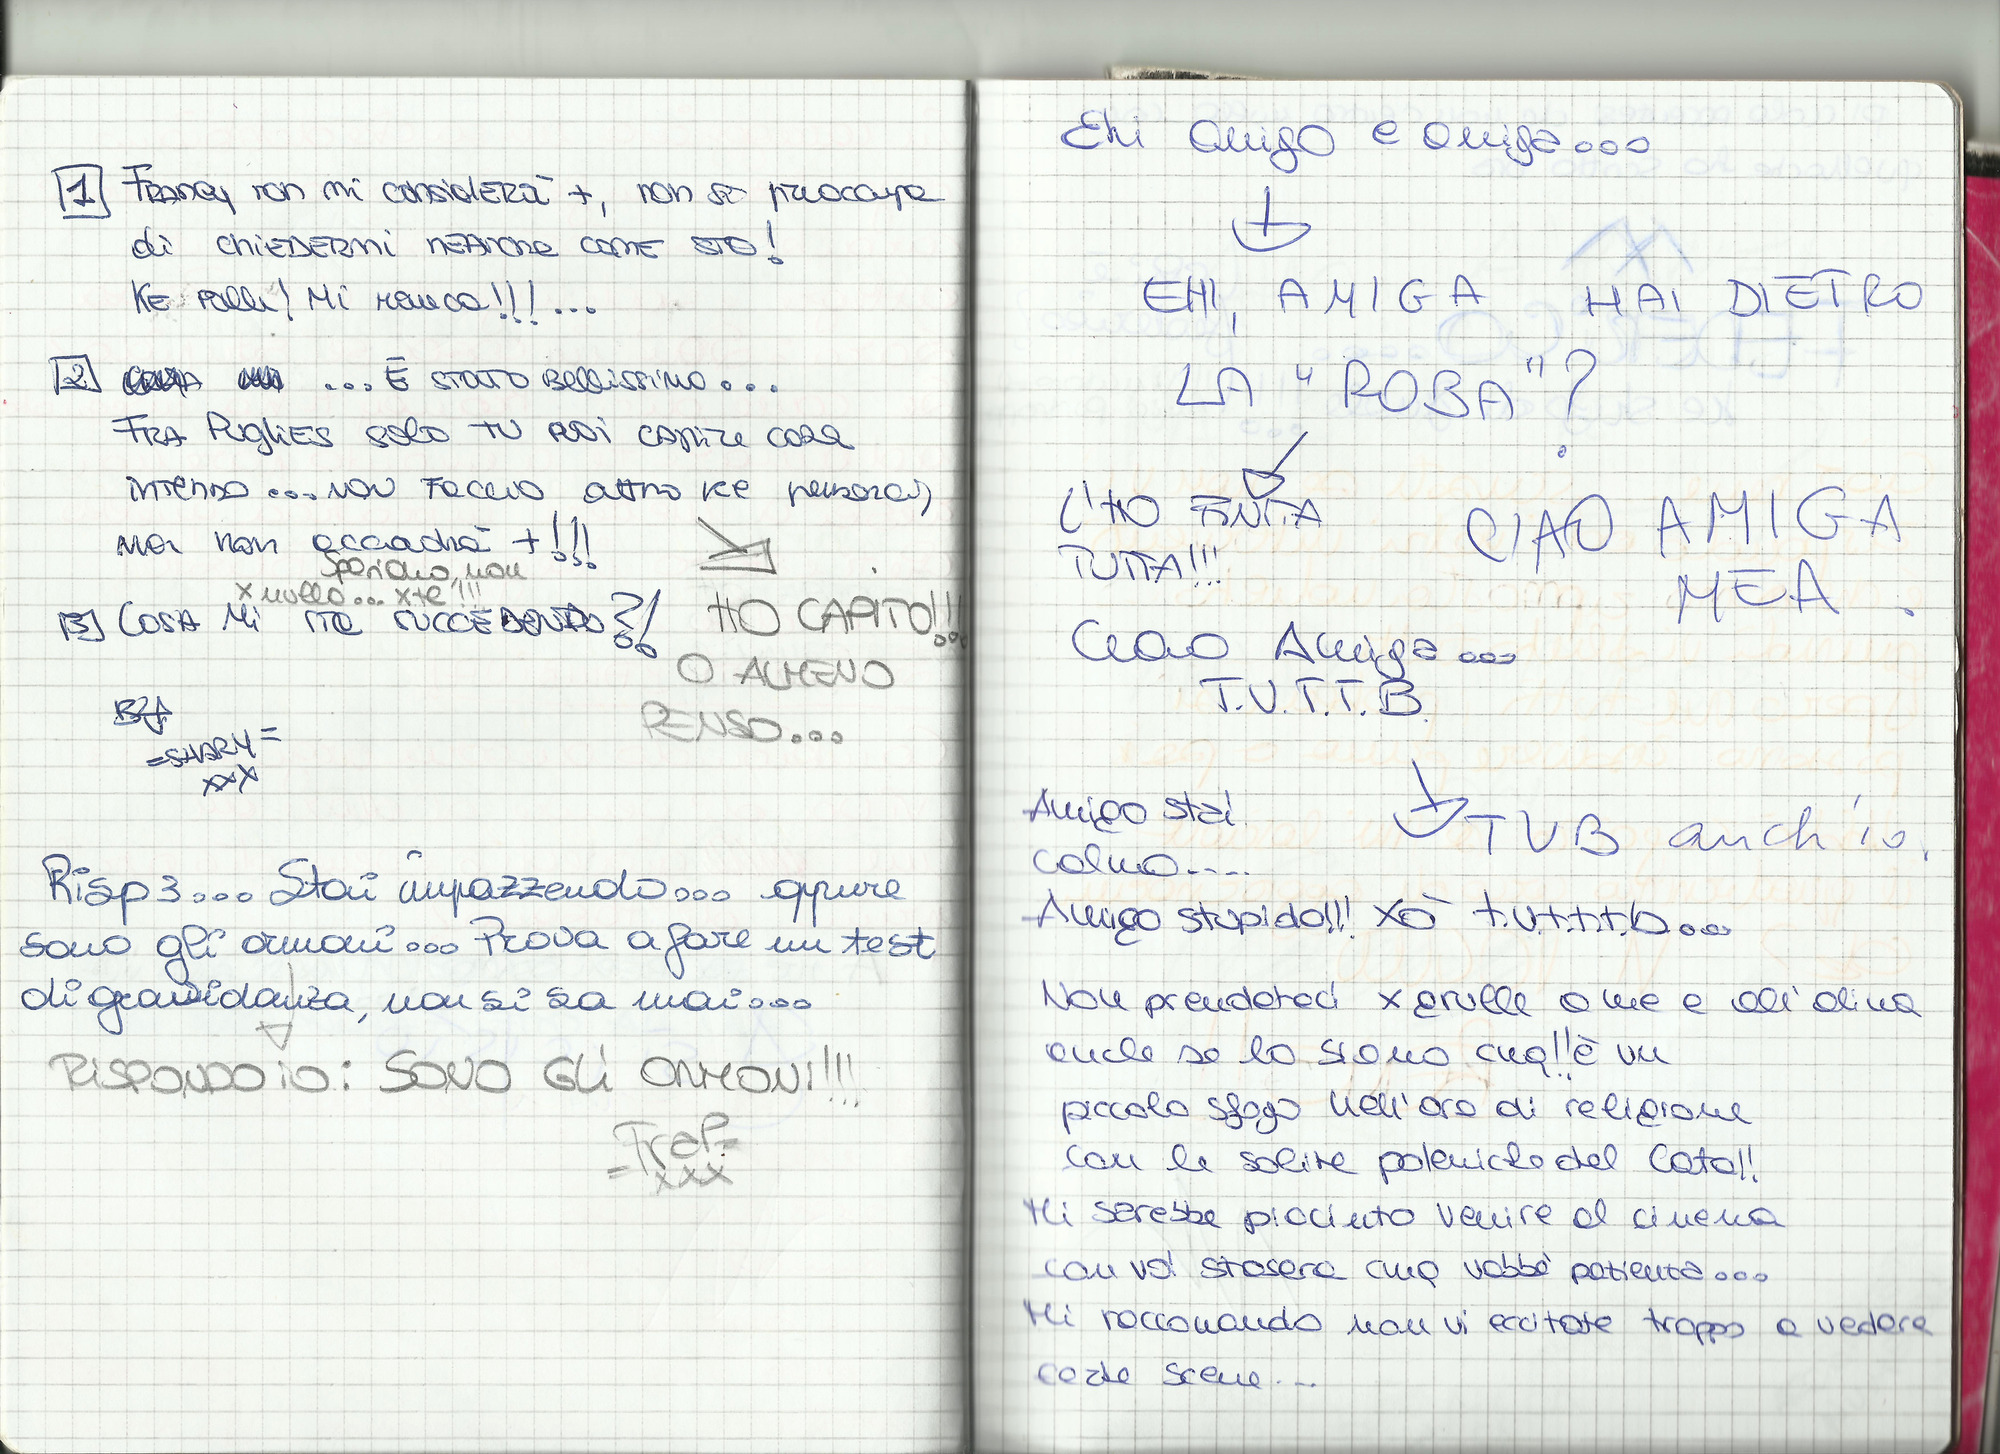 1 Francy non mi considera +, non si preoccupa
di chiedermi neanche come sto!
Ke palle! Mi manca!!!...
2 ... È stato bellissimo...
Fra Puglies solo tu puoi capire cosa
intendo... non faccio altro ke pensarci,
ma non accadrà +!!!
Speriamo, non
x nulla... x te!!!
3 Cosa mi sta succedendo?!
HO CAPITO!!!
O ALMENO
PENSO...
By
=SHARY=
xxx
Risp 3... Stai impazzendo... oppure
sono gli ormoni... Prova a fare un test
di gravidanza, non si sa mai...
RISPONDO IO: SONO GLI ORMONI!!!
=FraP.=
xxx
Ehi amigo e amiga...
EHI, AMIGA HAI DIETRO
LA "ROBA"?
L'HO FINITA
TUTTA!!!
CIAO AMIGA
MEA.
Ciao Amiga...
T.V.T.T.B.
Amigo stai
calmo....
TVB anch'io.
Amigo stupido!!! xò t.v.t.t.t.b...
Non prendeteci x grulle a me e all'alina
anche se lo siamo cmq!! è un
piccolo sfogo nell'ora di religione
con le solite polemiche del Cata!!
Mi sarebbe piaciuto venire al cinema
con voi stasera cmq vabbè patienta...
Mi raccomando non vi eccitate troppo a vedere
certe scene...